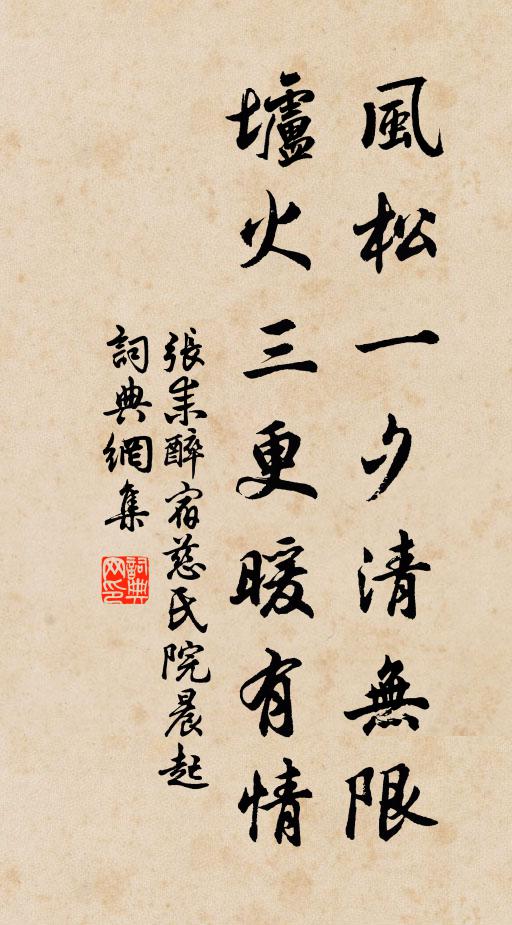 風松一夕清無限
壚火三更暖有情
張耒醉宿慈氏院晨起
詞典網集
詞典网印